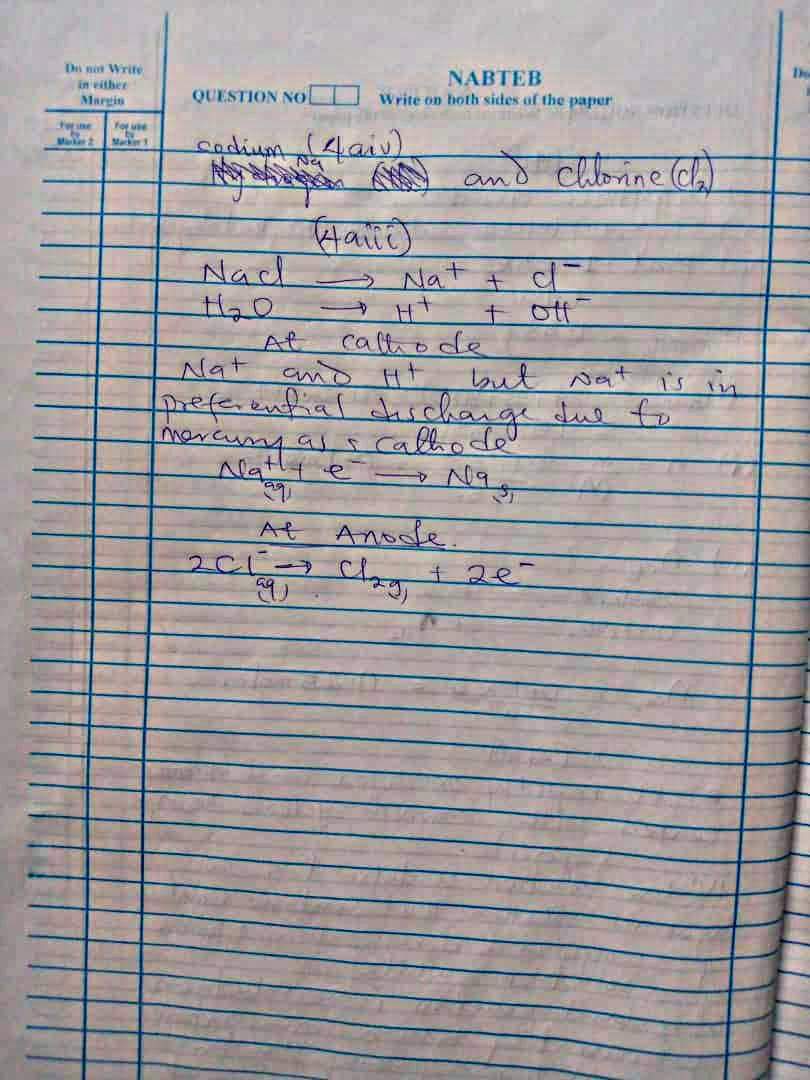 Do not Write
in either
Margin
NABTEB
QUESTION NO
Write on both sides of the paper
For use
by
Marker 2
For use
by
Marker 1
codium (4aiv)
Na
and Chlorine (Cl2)
(4aiii)
Nacl → Na+ + cl-
H2O → H+ + OH-
At cathode
Na+ and H+ but Na+ is in
preferential discharge due to
mercury as cathode
Na+(aq) + e- → Na(s)
At Anode.
2Cl-(aq) → Cl2(g) + 2e-